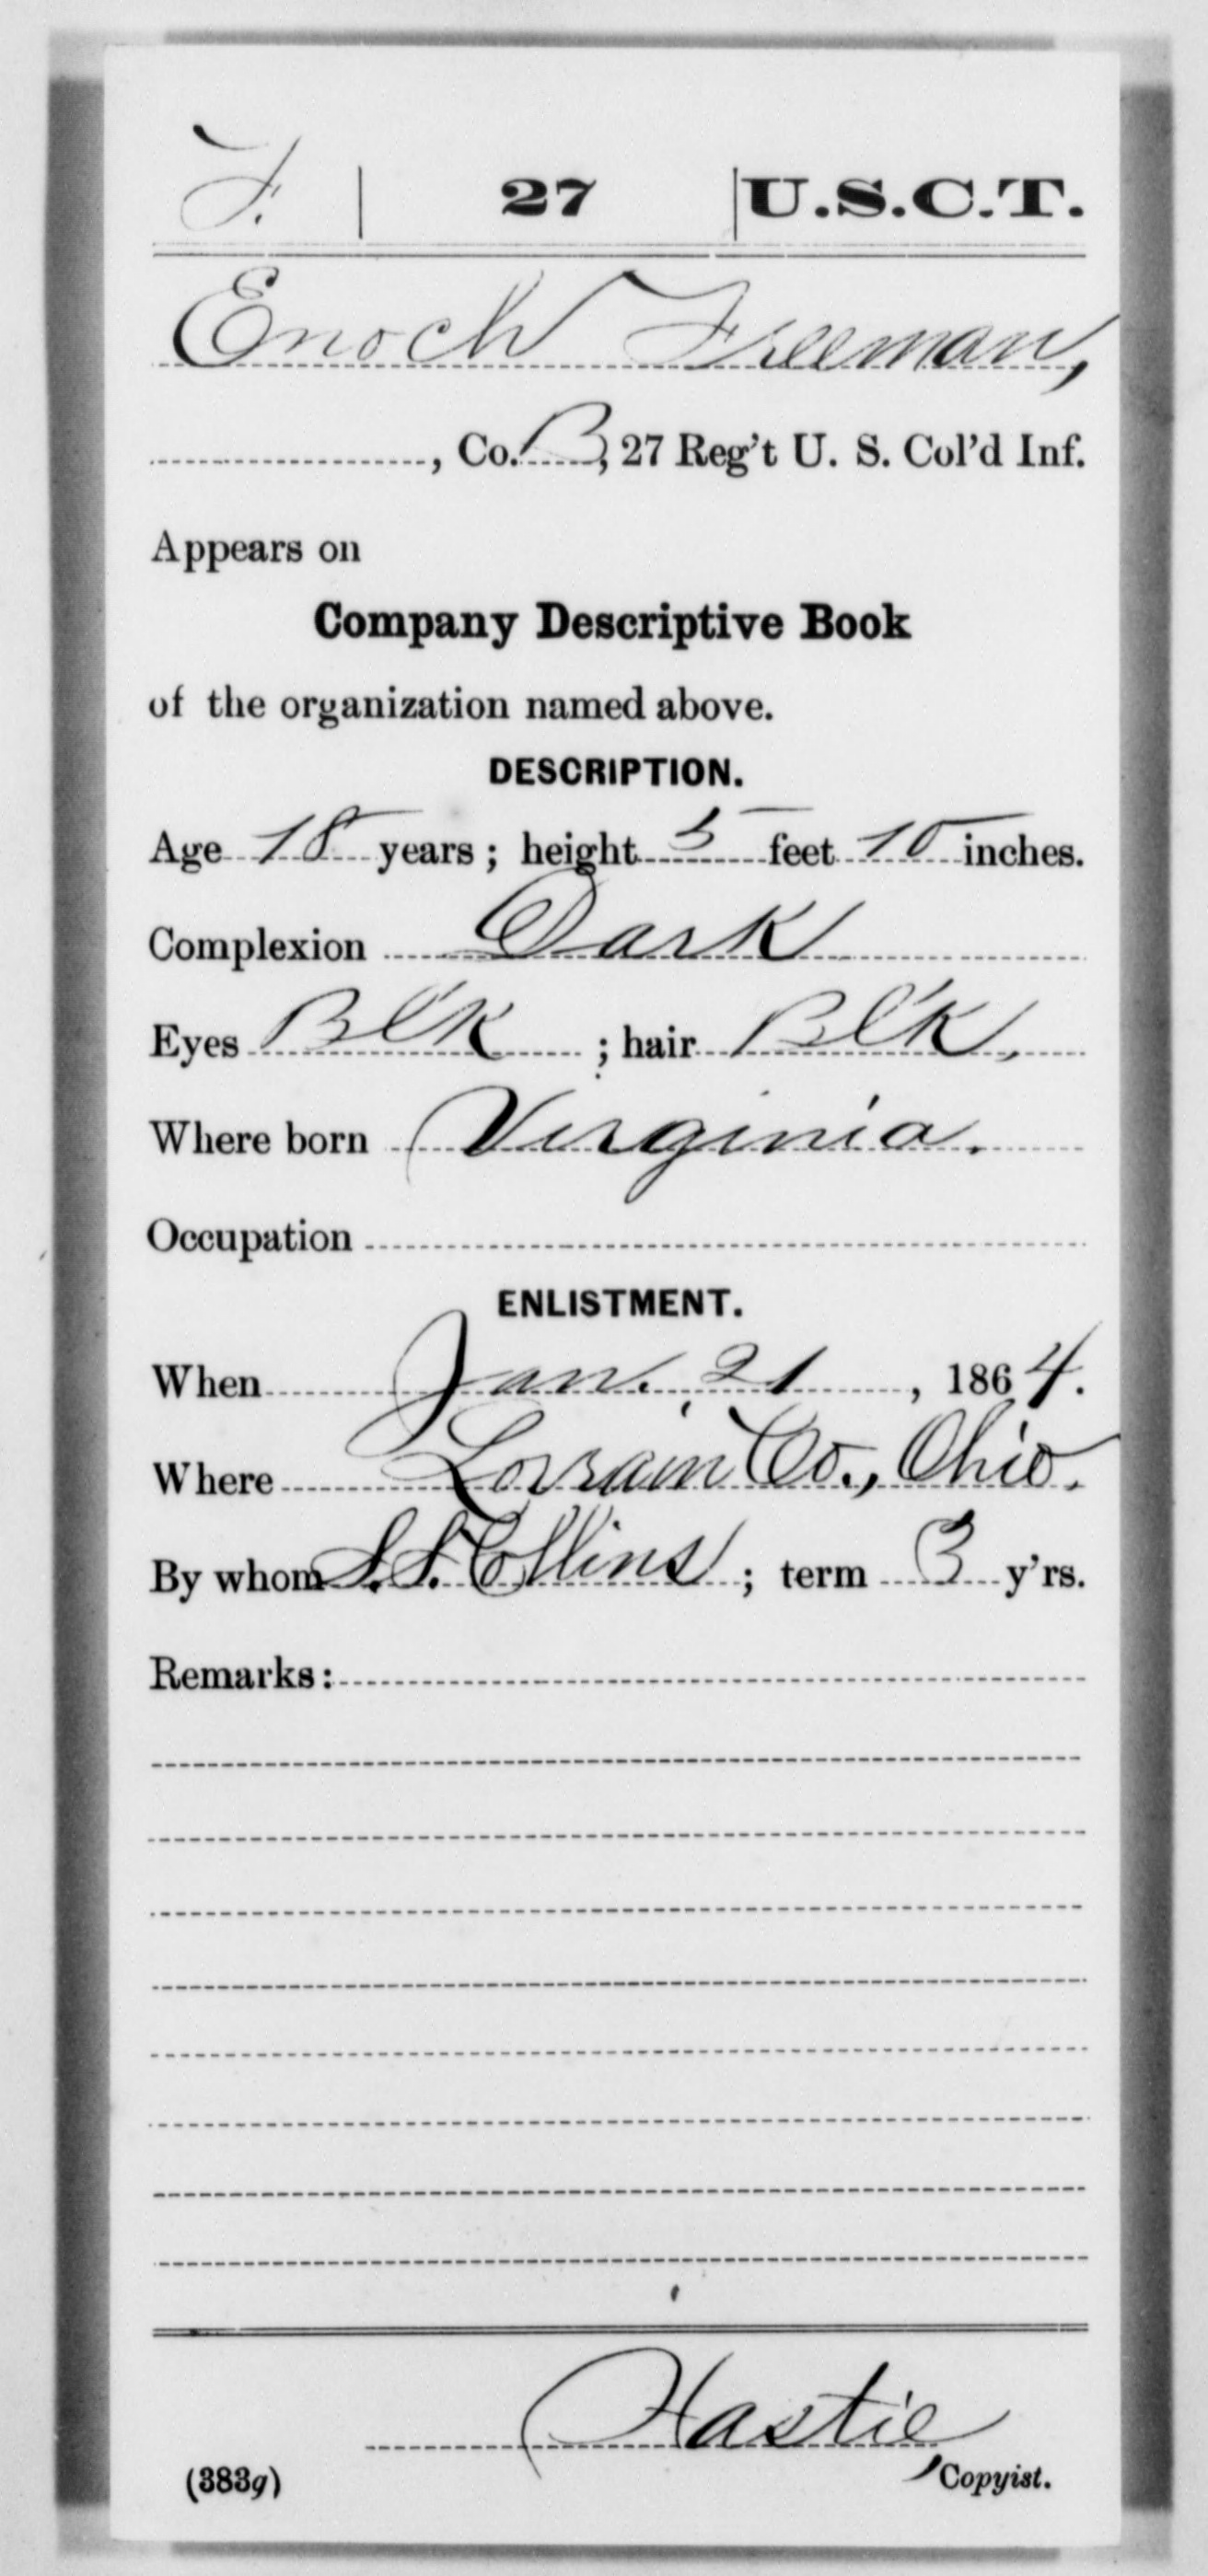 F. | 27 | U.S.C.T.
Enoch Freeman,
, Co. B, 27 Reg't U. S. Col'd Inf.
Appears on
Company Descriptive Book
of the organization named above.
DESCRIPTION.
Age 18 years; height 5 feet 10 inches.
Complexion Dark
Eyes Blk ; hair Blk.
Where born Virginia.
Occupation
ENLISTMENT.
When Jan. 21, 1864.
Where Lorrain Co., Ohio.
By whom S. S. Collins; term 3 y'rs.
Remarks:
Hastie
(383g) Copyist.